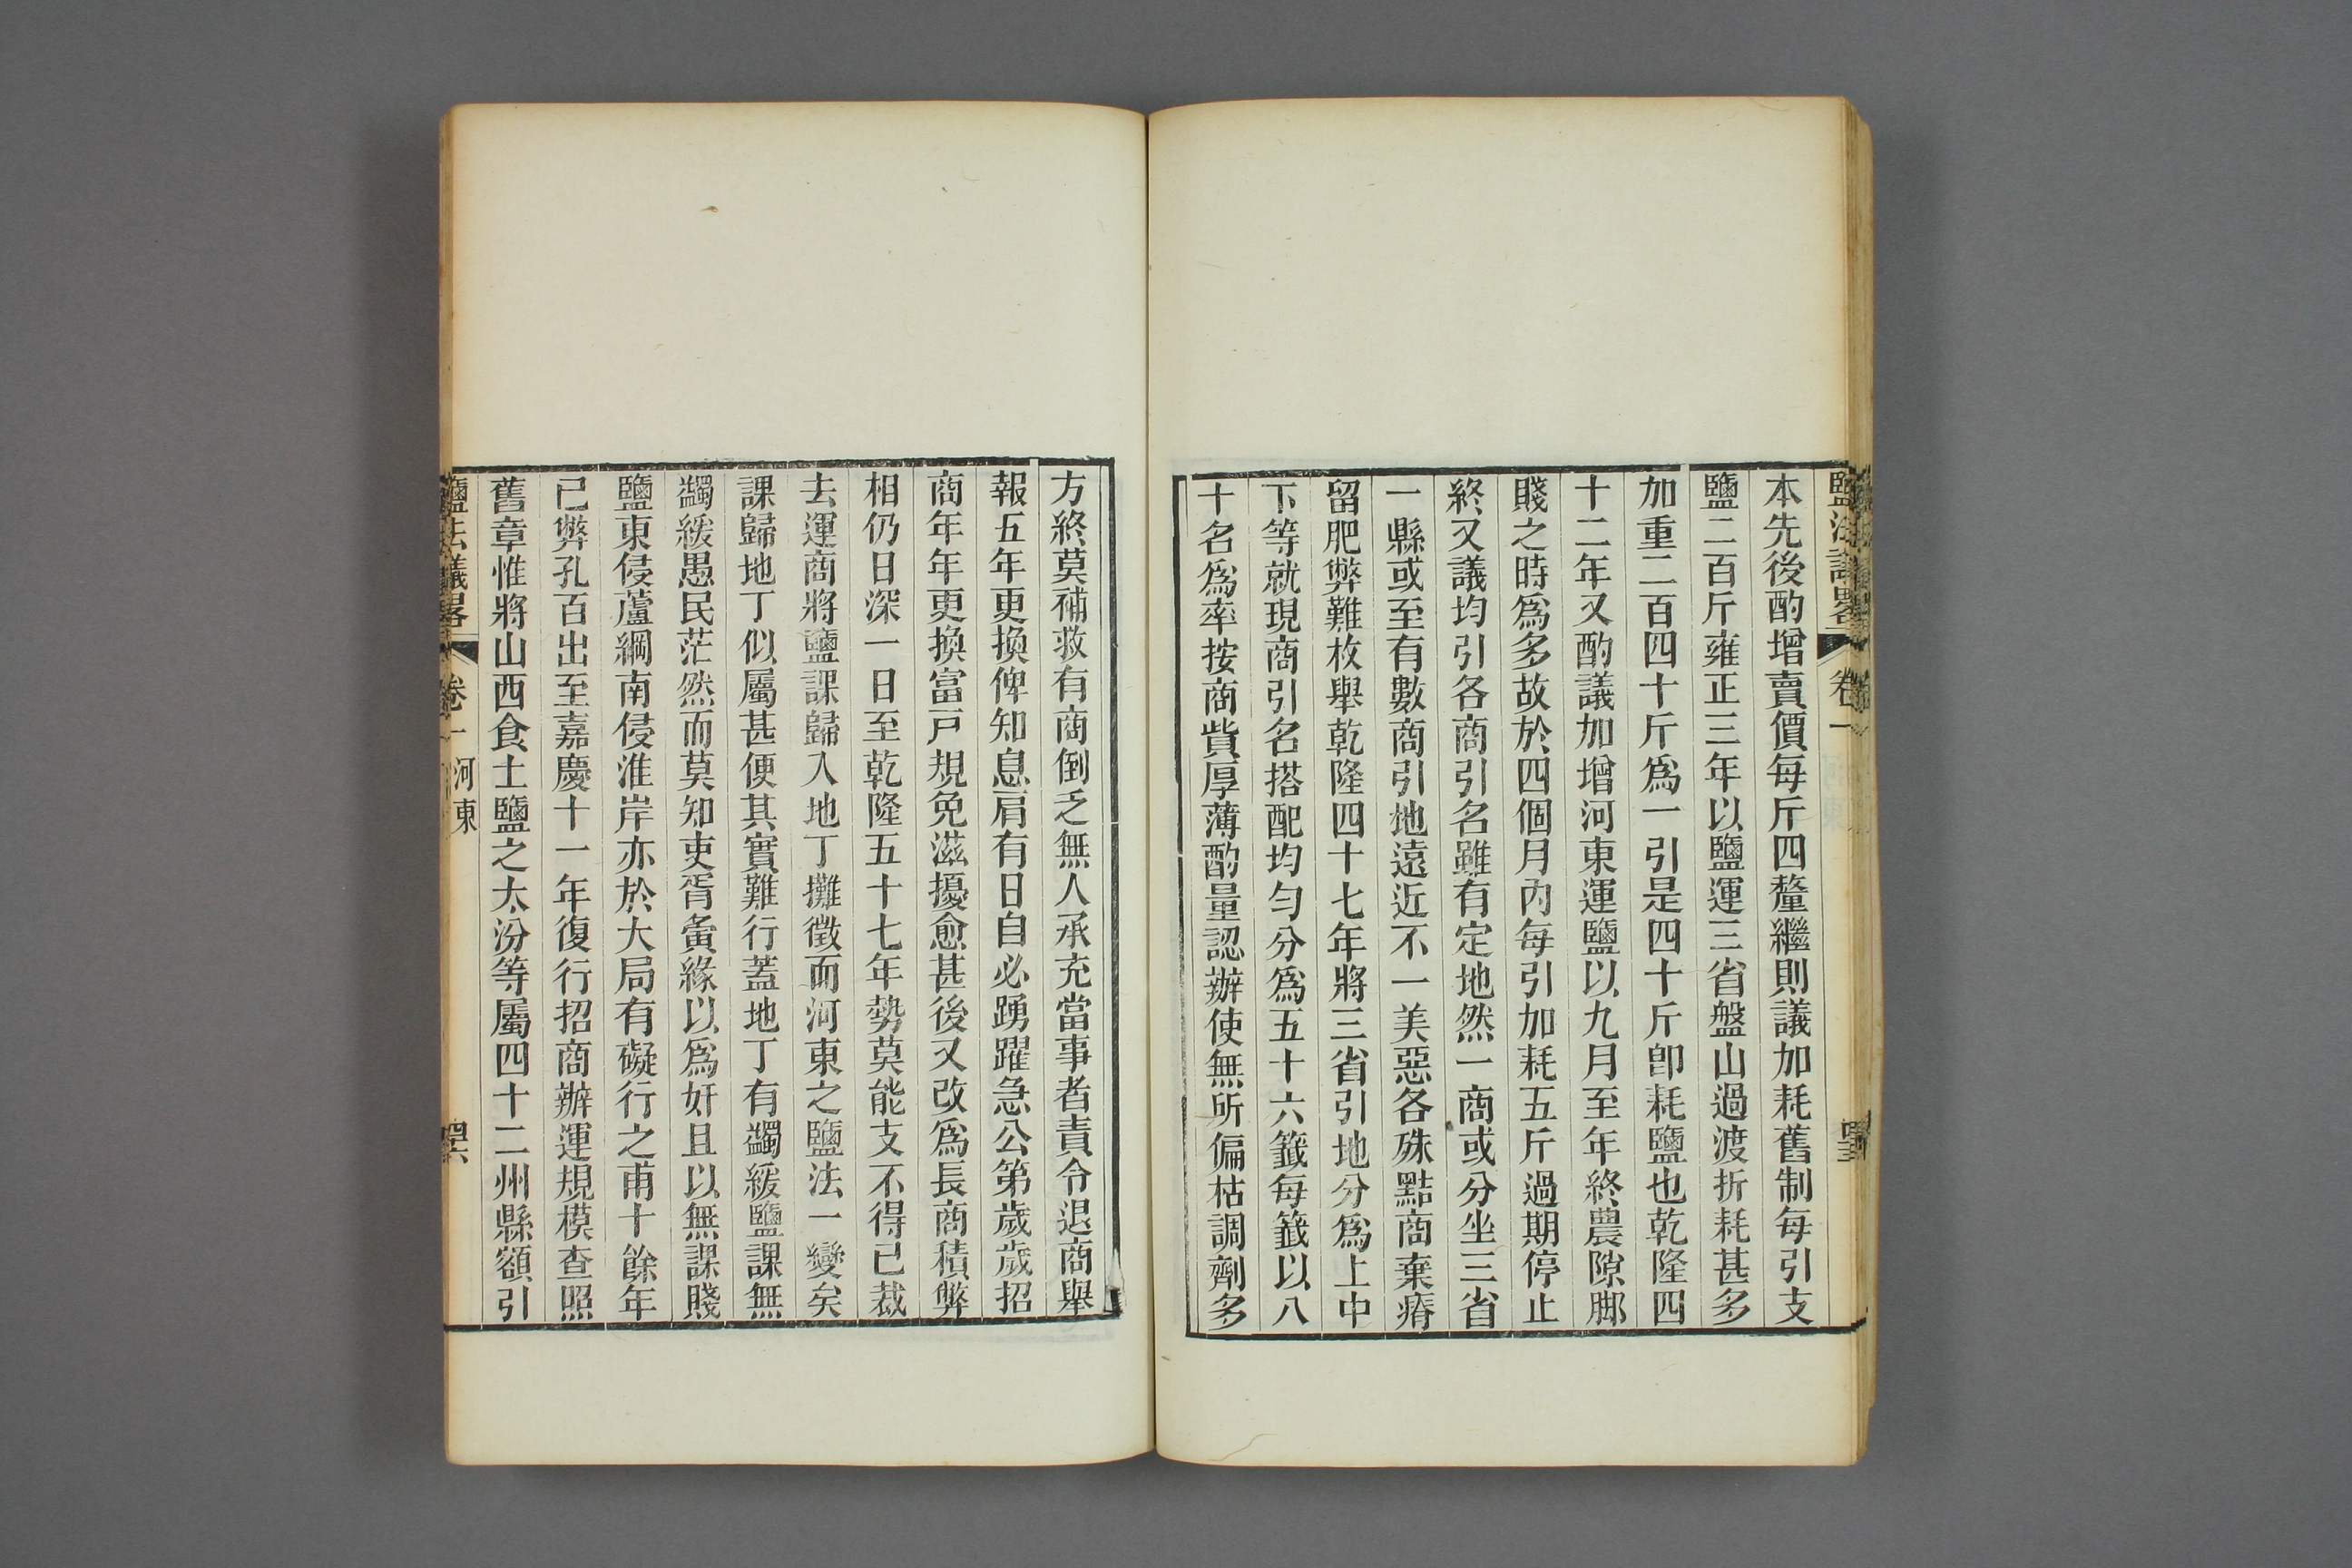 鹽法議畧 卷一
本先後酌增賣價每斤四釐繼則議加耗舊制每引支
鹽二百斤雍正三年以鹽運三省盤山過渡折耗甚多
加重二百四十斤爲一引是四十斤卽耗鹽也乾隆四
十二年又酌議加增河東運鹽以九月至年終農隙脚
賤之時爲多故於四個月內每引加耗五斤過期停止
終又議均引各商引名雖有定地然一商或分坐三省
一縣或至有數商引地遠近不一美惡各殊黠商棄瘠
留肥弊難枚舉乾隆四十七年將三省引地分爲上中
下等就現商引名搭配均勻分爲五十六籤每籤以八
十名爲率按商貲厚薄酌量認辦使無所偏枯調劑多
方終莫補救有商倒乏無人承充當事者責令退商舉
報五年更換俾知息肩有日自必踴躍急公第歲歲招
商年年更換富戸規免滋擾愈甚後又改爲長商積弊
相仍日深一日至乾隆五十七年勢莫能支不得已裁
去運商將鹽課歸入地丁攤徵而河東之鹽法一變矣
課歸地丁似屬甚便其實難行蓋地丁有蠲緩鹽課無
蠲緩愚民茫然而莫知吏胥夤緣以爲奸且以無課賤
鹽東侵蘆綱南侵淮岸亦於大局有礙行之甫十餘年
已弊孔百出至嘉慶十一年復行招商辦運規模查照
舊章惟將山西食土鹽之太汾等屬四十二州縣額引
鹽法議畧 卷一 河東 四六